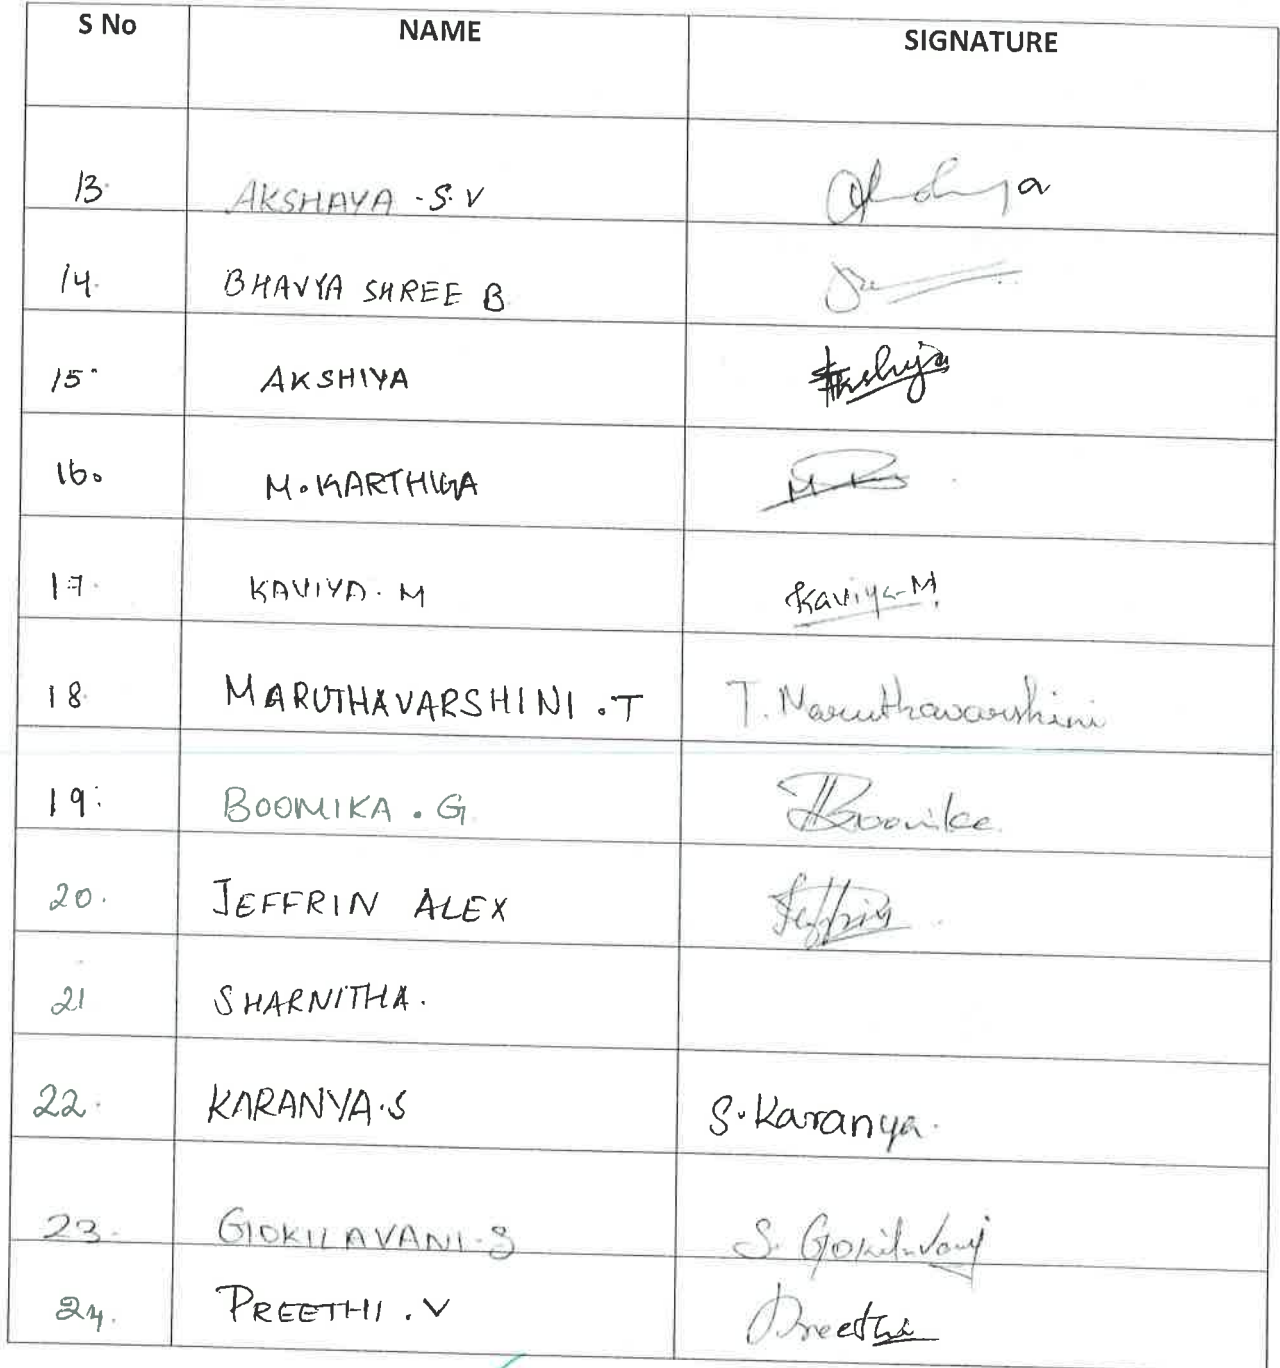 S No NAME SIGNATURE
13. AKSHAYA .S.V
14. BHAVYA SHREE B
15. AKSHIYA Akshiya
16. M.KARTHIGA
17. KAVIYA.M Kaviya-M
18. MARUTHAVARSHINI .T T. Maruthavarshini
19. BOOMIKA . G Boomika
20. JEFFRIN ALEX Jeffrin
21 SHARNITHA.
22. KARANYA.S S.Karanya.
23. GOKILAVANI.S S. Gokilavani
24. PREETHI . V Preethi